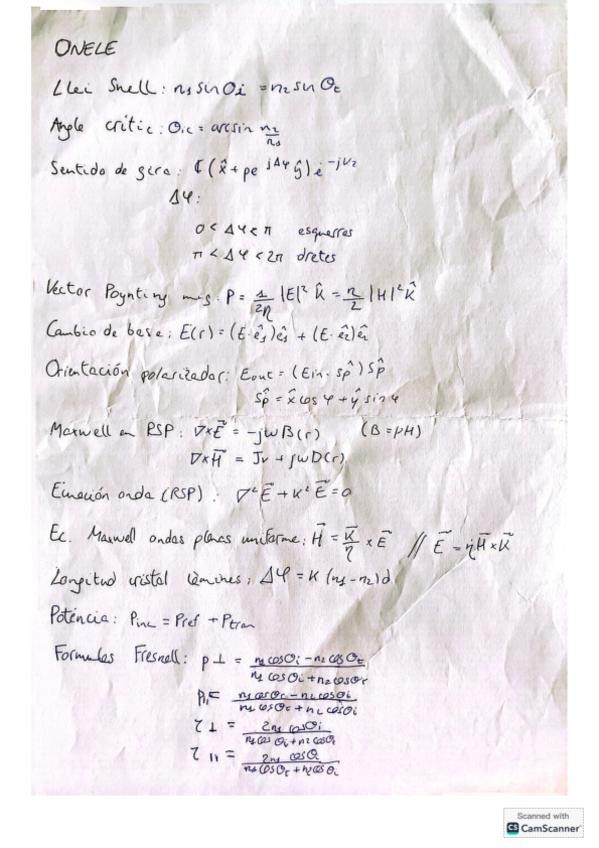 ONELE
Llei Snell: n₁ sin Θi = n₂ sin Θt
Angle crític: Θic = arcsin n₂/n₁
Sentido de giro: ℂ(x̂ + ρe^{jΔφ} ŷ)e^{-jkz}
Δφ:
0 < Δφ < π esquerres
π < Δφ < 2π dretes
Vector Poynting mig: P = 1/2η |E|² k̂ = η/2 |H|² k̂
Cambio de base: E(r) = (E·ê₁)ê₁ + (E·ê₂)ê₂
Orientación polarizador: Eout = (Ein·ŝp)ŝp
ŝp = x̂ cos φ + ŷ sin φ
Maxwell en RSP: ∇×E⃗ = -jωB(r) (B = μH)
∇×H⃗ = Jv + jωD(r)
Ecuación onda (RSP): ∇²E⃗ + k²E⃗ = 0
Ec. Maxwell ondas planas uniforme: H⃗ = k⃗/η × E⃗ // E⃗ = ηH⃗ × k⃗
Longitud cristal làmines: Δφ = k(n₁ - n₂)d
Potència: Pinc = Pref + Ptran
Formulas Fresnell: ρ⊥ = (n₁ cos Θi - n₂ cos Θt)/(n₁ cos Θi + n₂ cos Θt)
ρ∥ = (n₁ cos Θt - n₂ cos Θi)/(n₁ cos Θt + n₂ cos Θi)
τ⊥ = (2n₁ cos Θi)/(n₁ cos Θi + n₂ cos Θt)
τ∥ = (2n₁ cos Θi)/(n₁ cos Θt + n₂ cos Θi)
Scanned with
CS CamScanner